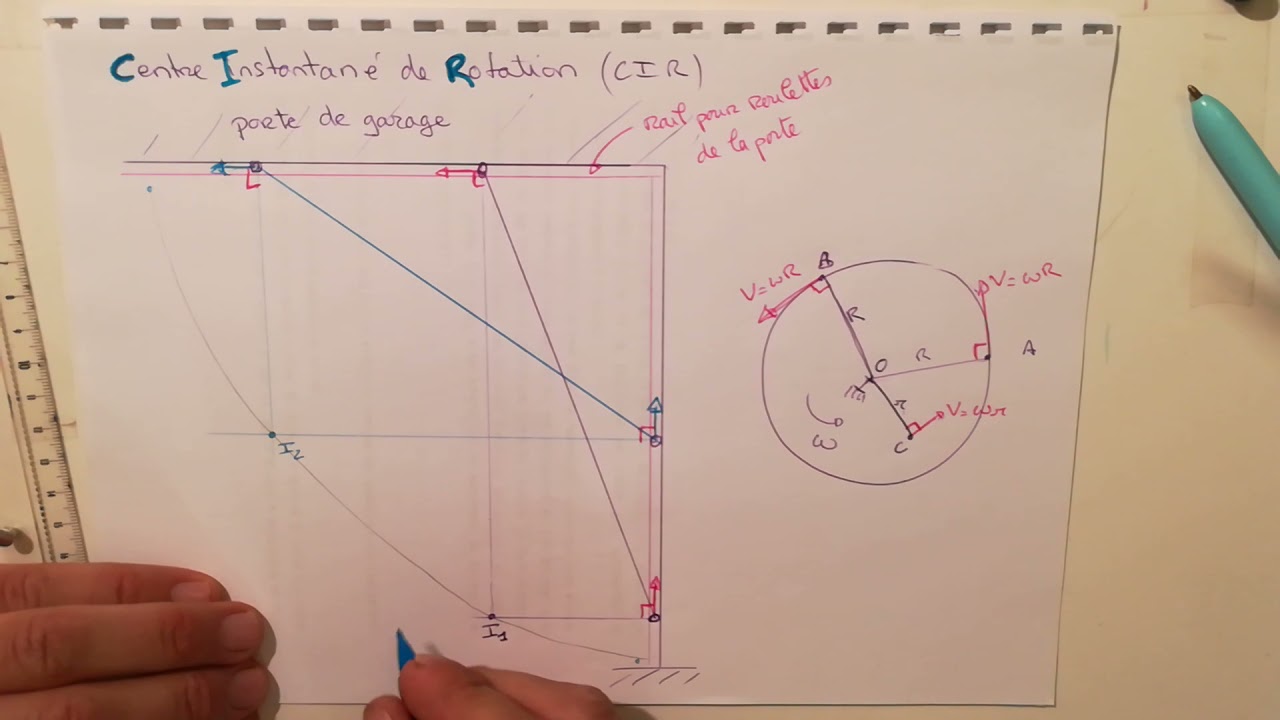 Centre Instantané de Rotation (CIR)
porte de garage
rail pour roulettes
de la porte
B
V=ωR
V=ωR
R
O
R
A
r
V=ωr
C
ω
I2
I1